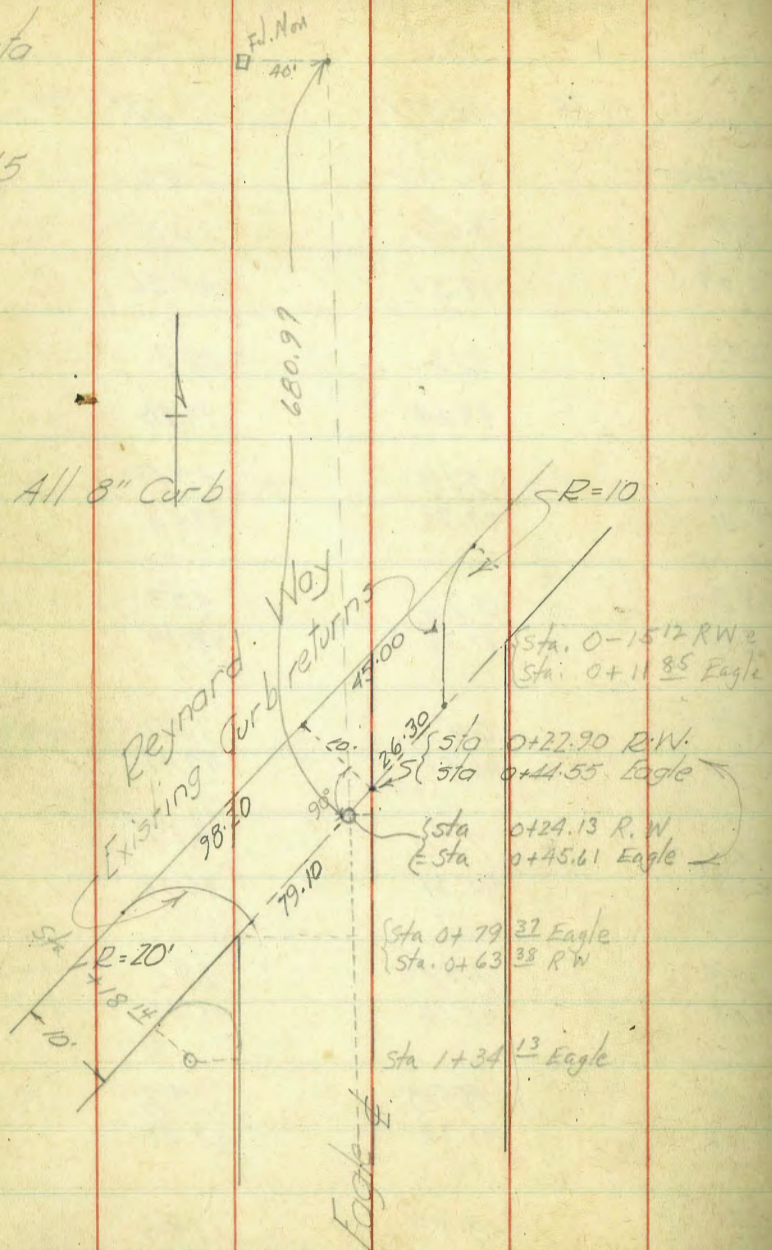 ta
Fd. Mon
40'
15
680.97
All 8" Curb
R=10
Reynard Way
Existing Curb returns
45.00
{Sta. 0-15 12 RW
{Sta. 0+11 85 Eagle
20.
26.30
{sta 0+22.90 R.W.
{sta 0+44.55 Eagle
90°
98.20
{sta 0+24.13 R.W
{= sta 0+45.61 Eagle
79.10
{Sta 0+79 37 Eagle
{sta. 0+63 38 RW
Sta
R=20'
+18 14
10.
Sta 1+34 13 Eagle
Eagle